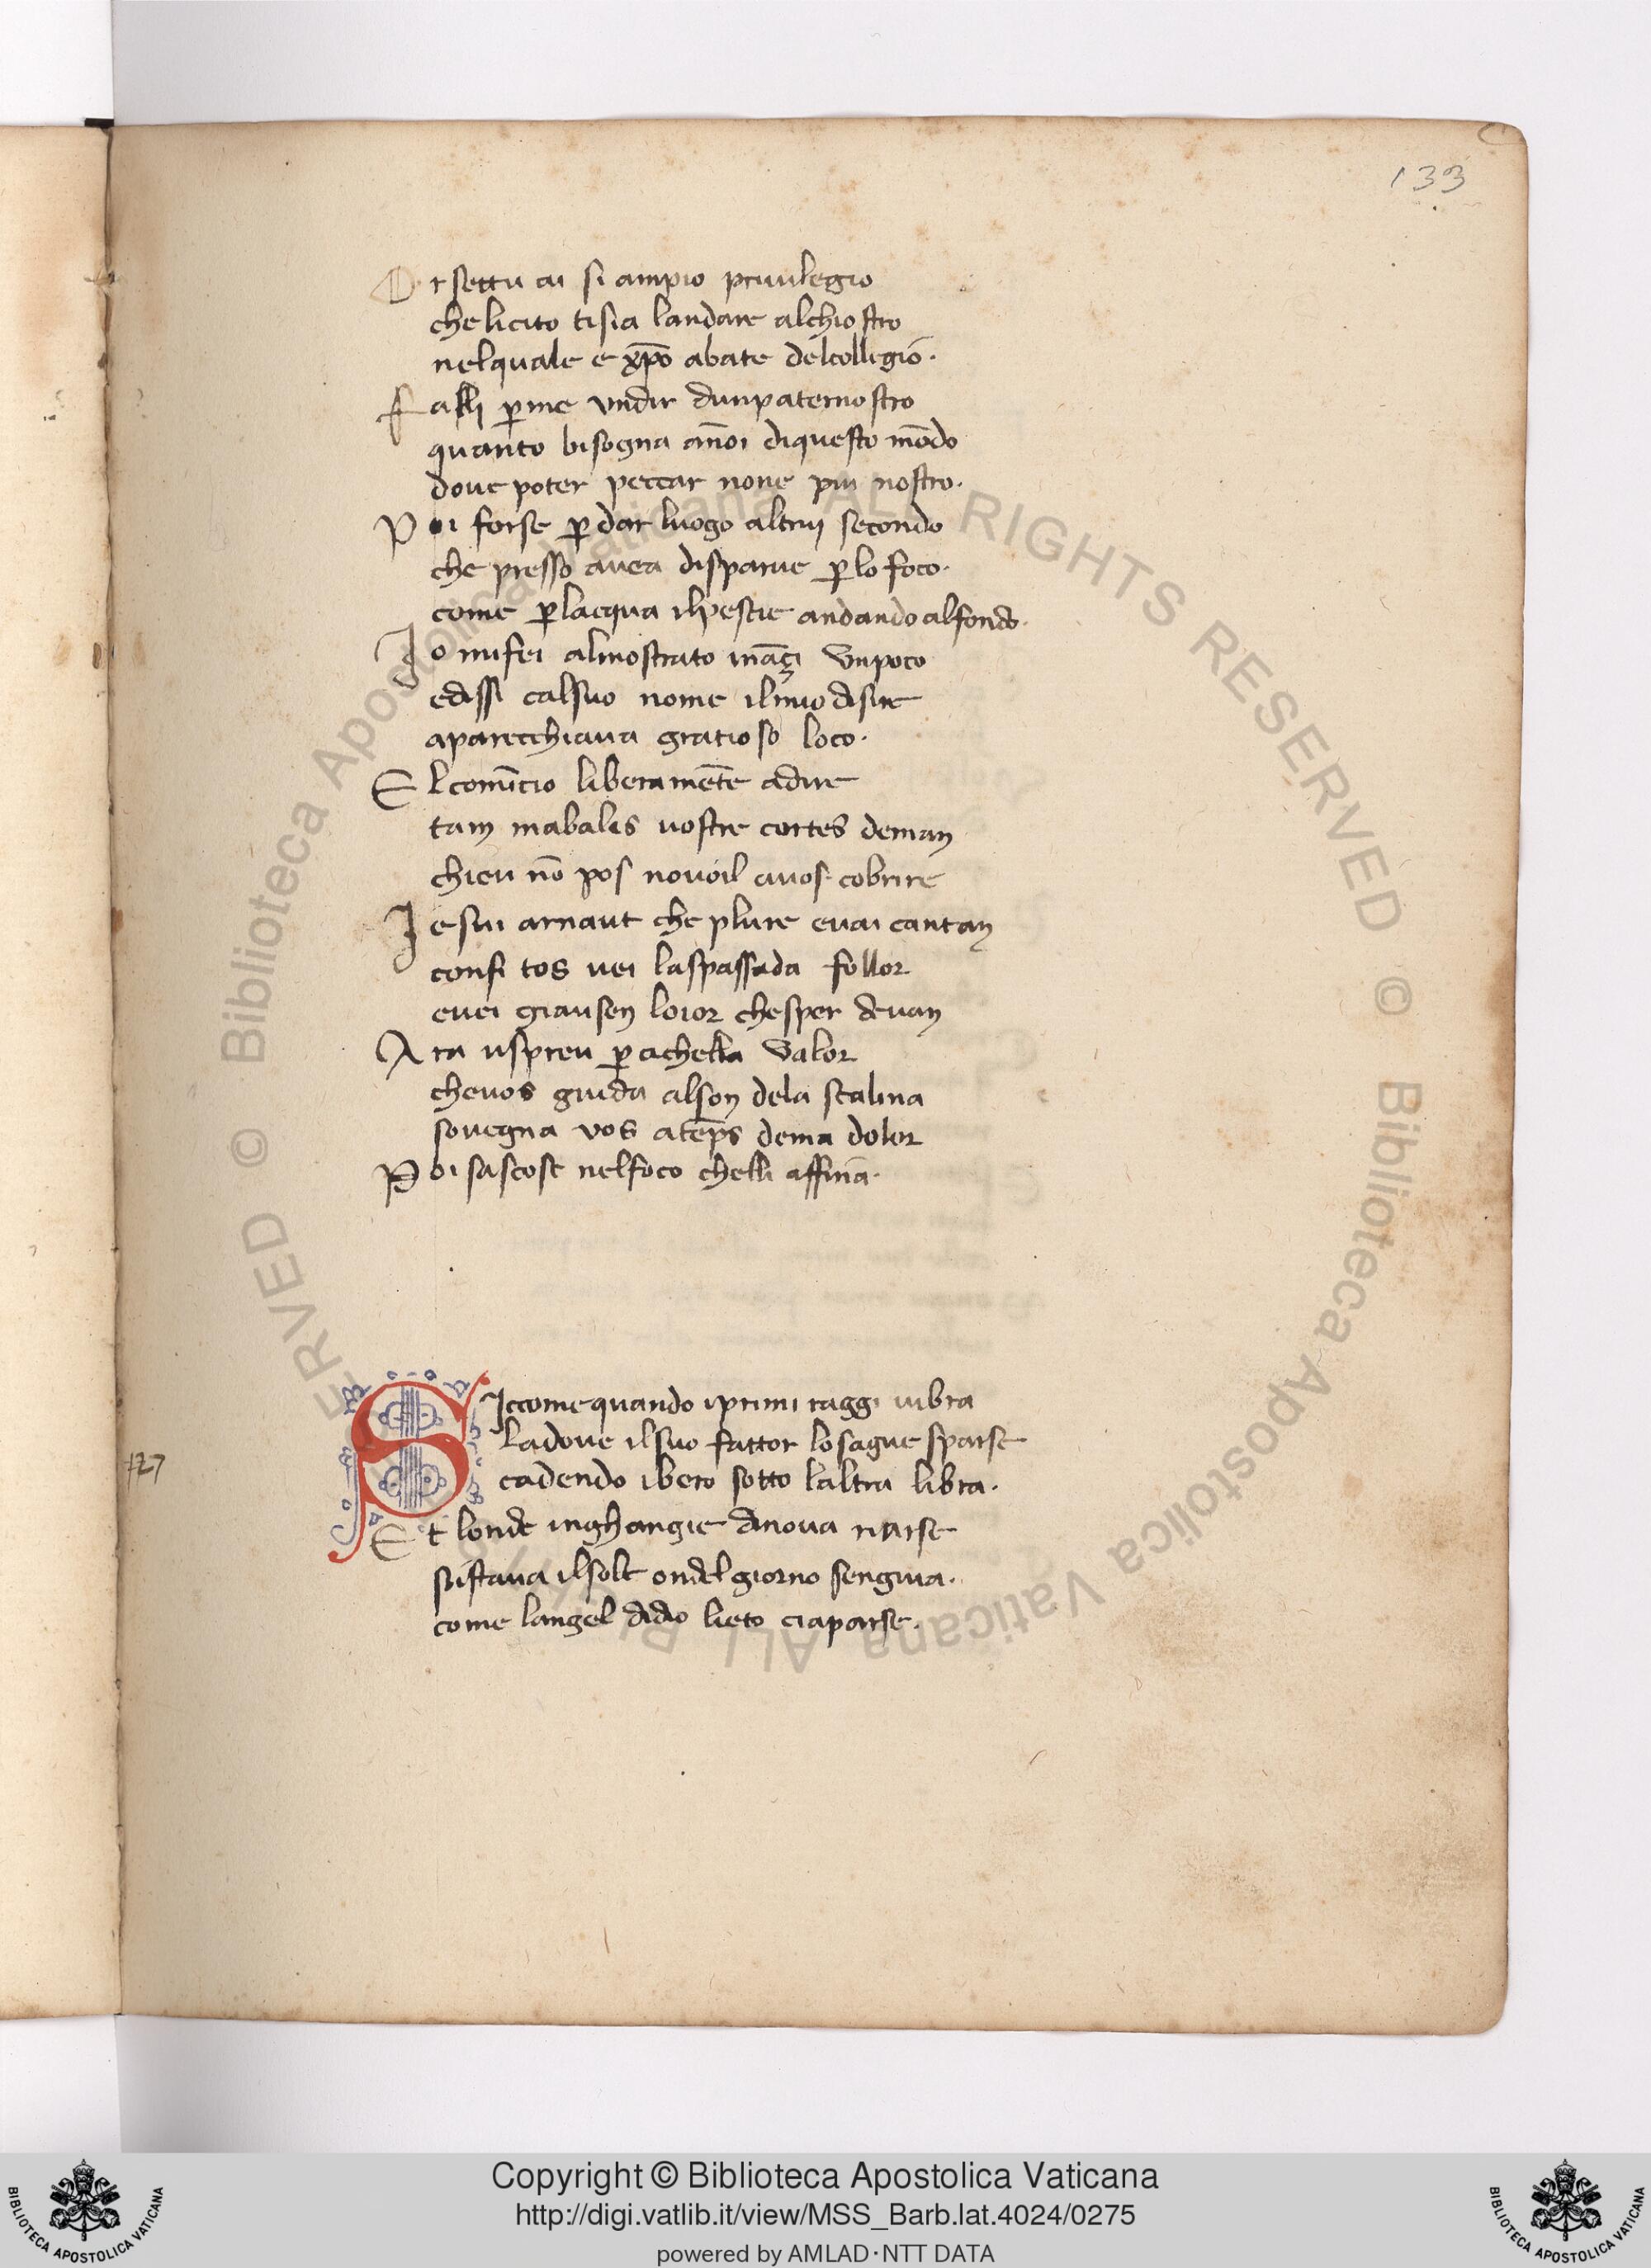 133
Or settu ai si ampio priuilegio
che licito tisia landare alchiostro
nelquale e xp̄o abate delcollegio.
falli ꝑme vndir dunpaternostro
quanto bisogna ānoi diquesto mōdo
doue poter peccar none piu nostro.
Poi forse ꝑdar luogo altrui secondo
che presso auea disparue ꝑlo foco.
come ꝑlacqua ilpescie andando alfondo.
Jo mifei almostrato ināçi vnpoco
edissi calsuo nome ilmio disire
aparecchiaua gratioso loco.
El comīcio liberamēte adire
tam mabalis uostre cortes deman
chieu nō pos nouoil auos cobrire
Je sui arnaut che plure euai cantan
consi tos uei laspassada follor
euei giausen loior chesper deuan
Ara uspreu ꝑachella valor
cheuos guida alson dela scalina
souegna vos atēps dema dolor
Poi sascose nelfoco chelli affina.
SJccome quando iprimi raggi uibra
ladoue ilsuo fattor losague sparse
cadendo ibero sotto laltra libra.
Et londe inghangie dinoua riarse
sistaua ilsole ondel giorno sengiua.
come langel didio lieto ciaparse.
127
© Biblioteca Apostolica Vaticana ALL RIGHTS RESERVED © Biblioteca Apostolica Vaticana ALL RIGHTS RESERVED
Copyright © Biblioteca Apostolica Vaticana
http://digi.vatlib.it/view/MSS_Barb.lat.4024/0275
powered by AMLAD·NTT DATA
BIBLIOTECA APOSTOLICA VATICANA
BIBLIOTECA APOSTOLICA VATICANA